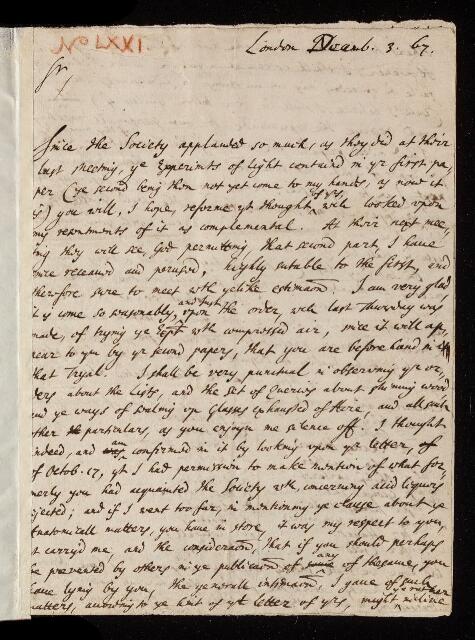 No LXXI.
London Decemb. 3. 67.
Sr,
Since the Society applauded so much, as they did at their
last meeting, ye Experimts of light contained in yr first pa,
per (ye second being then not yet come to my hands, as now it
is) you will, I hope, reforme yt thought of yrs wch looked upon
my resentments of it as complemental. At their next mee,
ting they will see, God permitting, that second part, I have
since received and perused, highly sutable to the first, and
therefore sure to meet wth ye like estimaon. I am very glad,
it is come so seasonably, and just upon the order, wch last Thursday was
made, of trying ye Expt wth compressed air, since it will ap,
pear to ym by yr second papers, that you are before hand in
that Tryal. I shall be very punctual in observing yr or,
ders about the Lists, and the set of Queries about shining wood
and ye ways of sealing up Glasses exhausted of Aire, and all such
other particulars, as you enjoyne me silence off. I thought
indeed, and am confirmed in it by looking upon yr letter, of
of Octob. 17, yt I had permission to make mention of what for,
merly you had acquainted the Society wth, concerning acid liquors
injected; and if I went too far, in mentioning ye clause about ye
Anatomicall matters, you have in store, it was my respect to you,
yt carry'd me, and the consideraon, that if you should perhaps
be prevented by others in ye publicaon of any of the same, you
have lying by you, the generall intimaon, I gave of such
matters, according to ye hint of yt letter of yrs, might